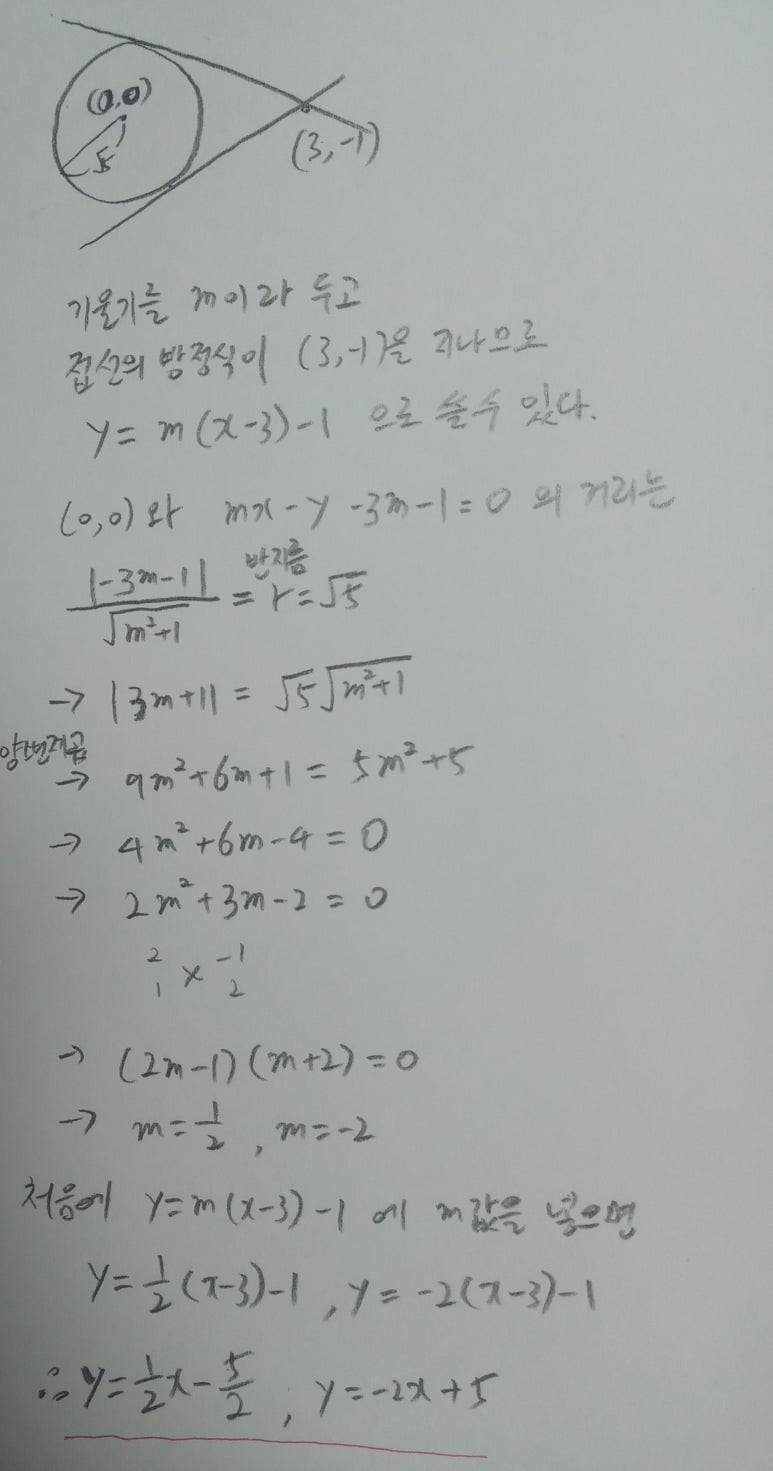 (0,0)
√5
(3,-1)
기울기를 m이라 두고
접선의 방정식이 (3,-1)을 지나므로
y = m(x-3)-1 으로 쓸수 있다.
(0,0)와 mx-y-3m-1=0 의 거리는
|-3m-1| / √(m²+1) = 반지름 r = √5
→ |3m+1| = √5√(m²+1)
양변제곱
→ 9m²+6m+1 = 5m²+5
→ 4m²+6m-4=0
→ 2m²+3m-2=0
2 × -1
1 2
→ (2m-1)(m+2)=0
→ m=1/2, m=-2
처음에 y=m(x-3)-1 에 m값을 넣으면
y=1/2(x-3)-1, y=-2(x-3)-1
∴ y=1/2x-5/2, y=-2x+5